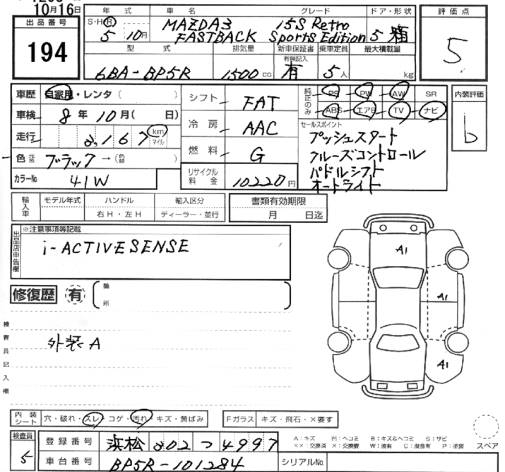 10月16日
出品番号
194
年式 車名 グレード ドア・形状
S・H・R 5年10月 MAZDA3 FASTBACK 15S Retro Sports Edition 5 箱
型式 排気量 新車保証書 乗車定員 最大積載量
有検記入
6BA-BP5R 1500cc 有 5人 kg
評価点
5
車歴 自家用・レンタ( )
車検 8年10月( 日)
走行 2,167 km マイル
色 ブラック→
カラーNo 41W
シフト FAT
冷房 AAC
燃料 G
リサイクル料金 10220円
純正のみ PS PW AW SR
ABS エアB TV ナビ
セールスポイント
プッシュスタート
クルーズコントロール
パドルシフト
オートライト
内装評価
b
輸入車 モデル年式 ハンドル 輸入区分
年 右H・左H ディーラー・並行
書類有効期限
月 日迄
出品店申告欄
※注意事項等記載
i-ACTIVESENSE
修復歴 有 ( 箇所
検査員記入欄
外装A
A1
A1
A1
内装シート 穴・破れ・スレ コゲ・汚れ・キズ・黄ばみ
Fガラス キズ・飛石・×要す
スペア
検査員
5
登録番号 浜松 302 つ 4997
車台番号 BP5R-101284
シリアルNo